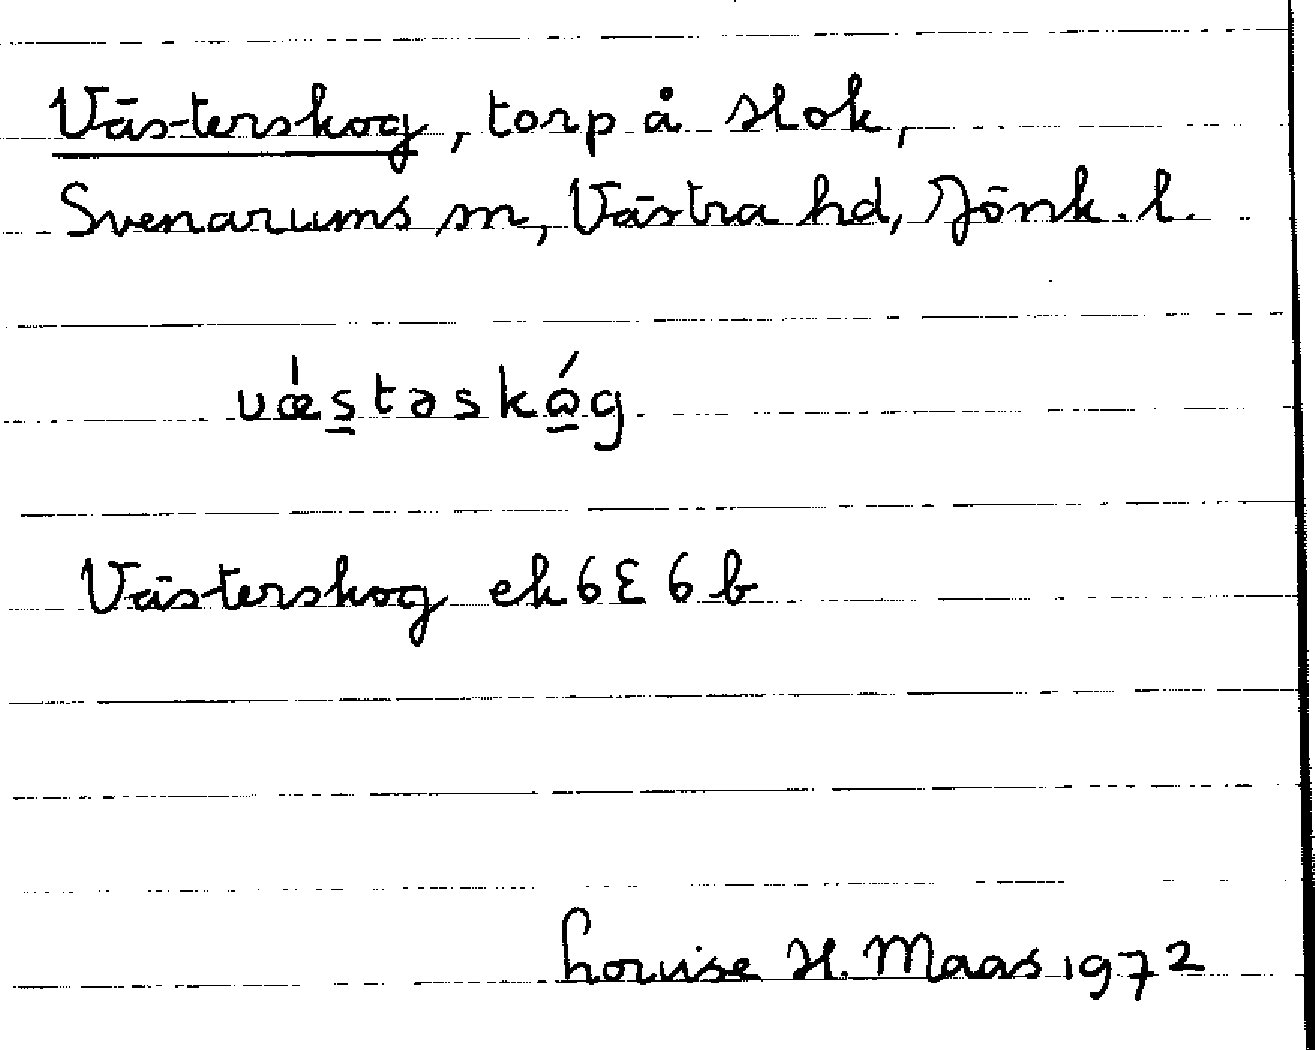 Västerskog, torp å Hok,
Svenarums sn, Västra hd, Jönk. l.
væ̍s̲təskɷ̲́g.
Västerskog ek 6E 6 b
Louise H. Maas 1972